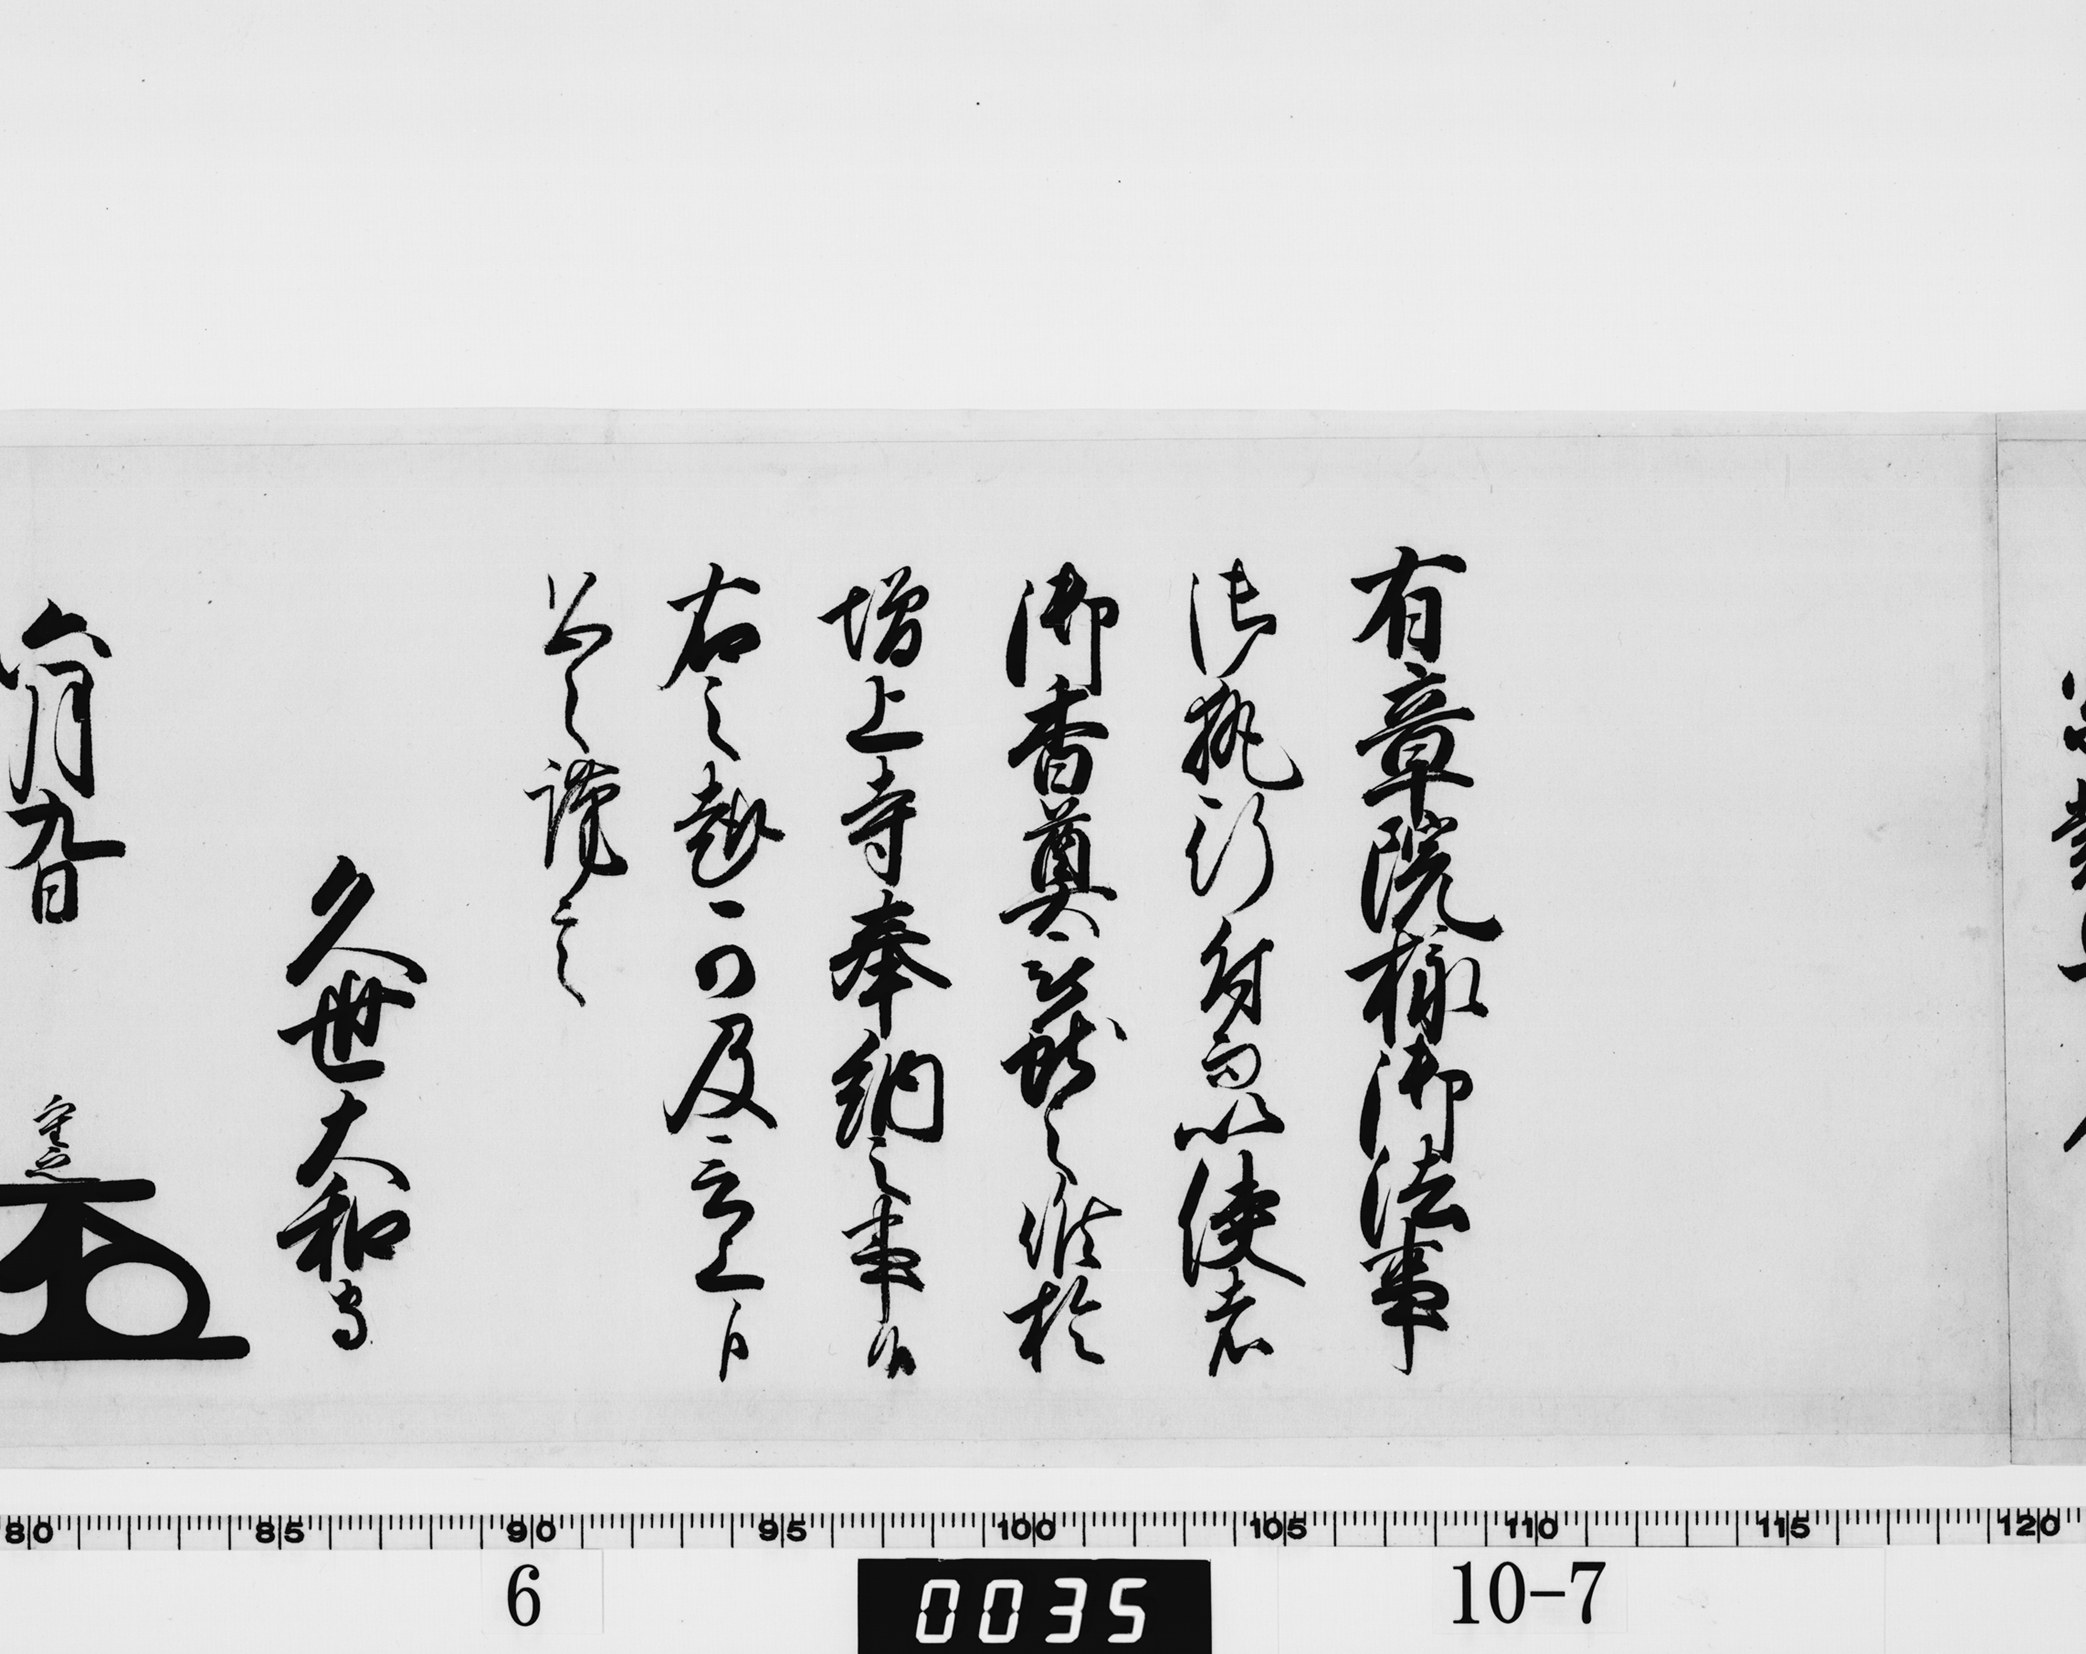 有章院様御法事
御執行付而以使者
御香奠公献之候於
増上寺奉納之事候
右之趣可及言上候
恐々謹言
久世大和守
六月九日
重之
80 85 90 95 100 105 110 115 120
6
0035
10-7